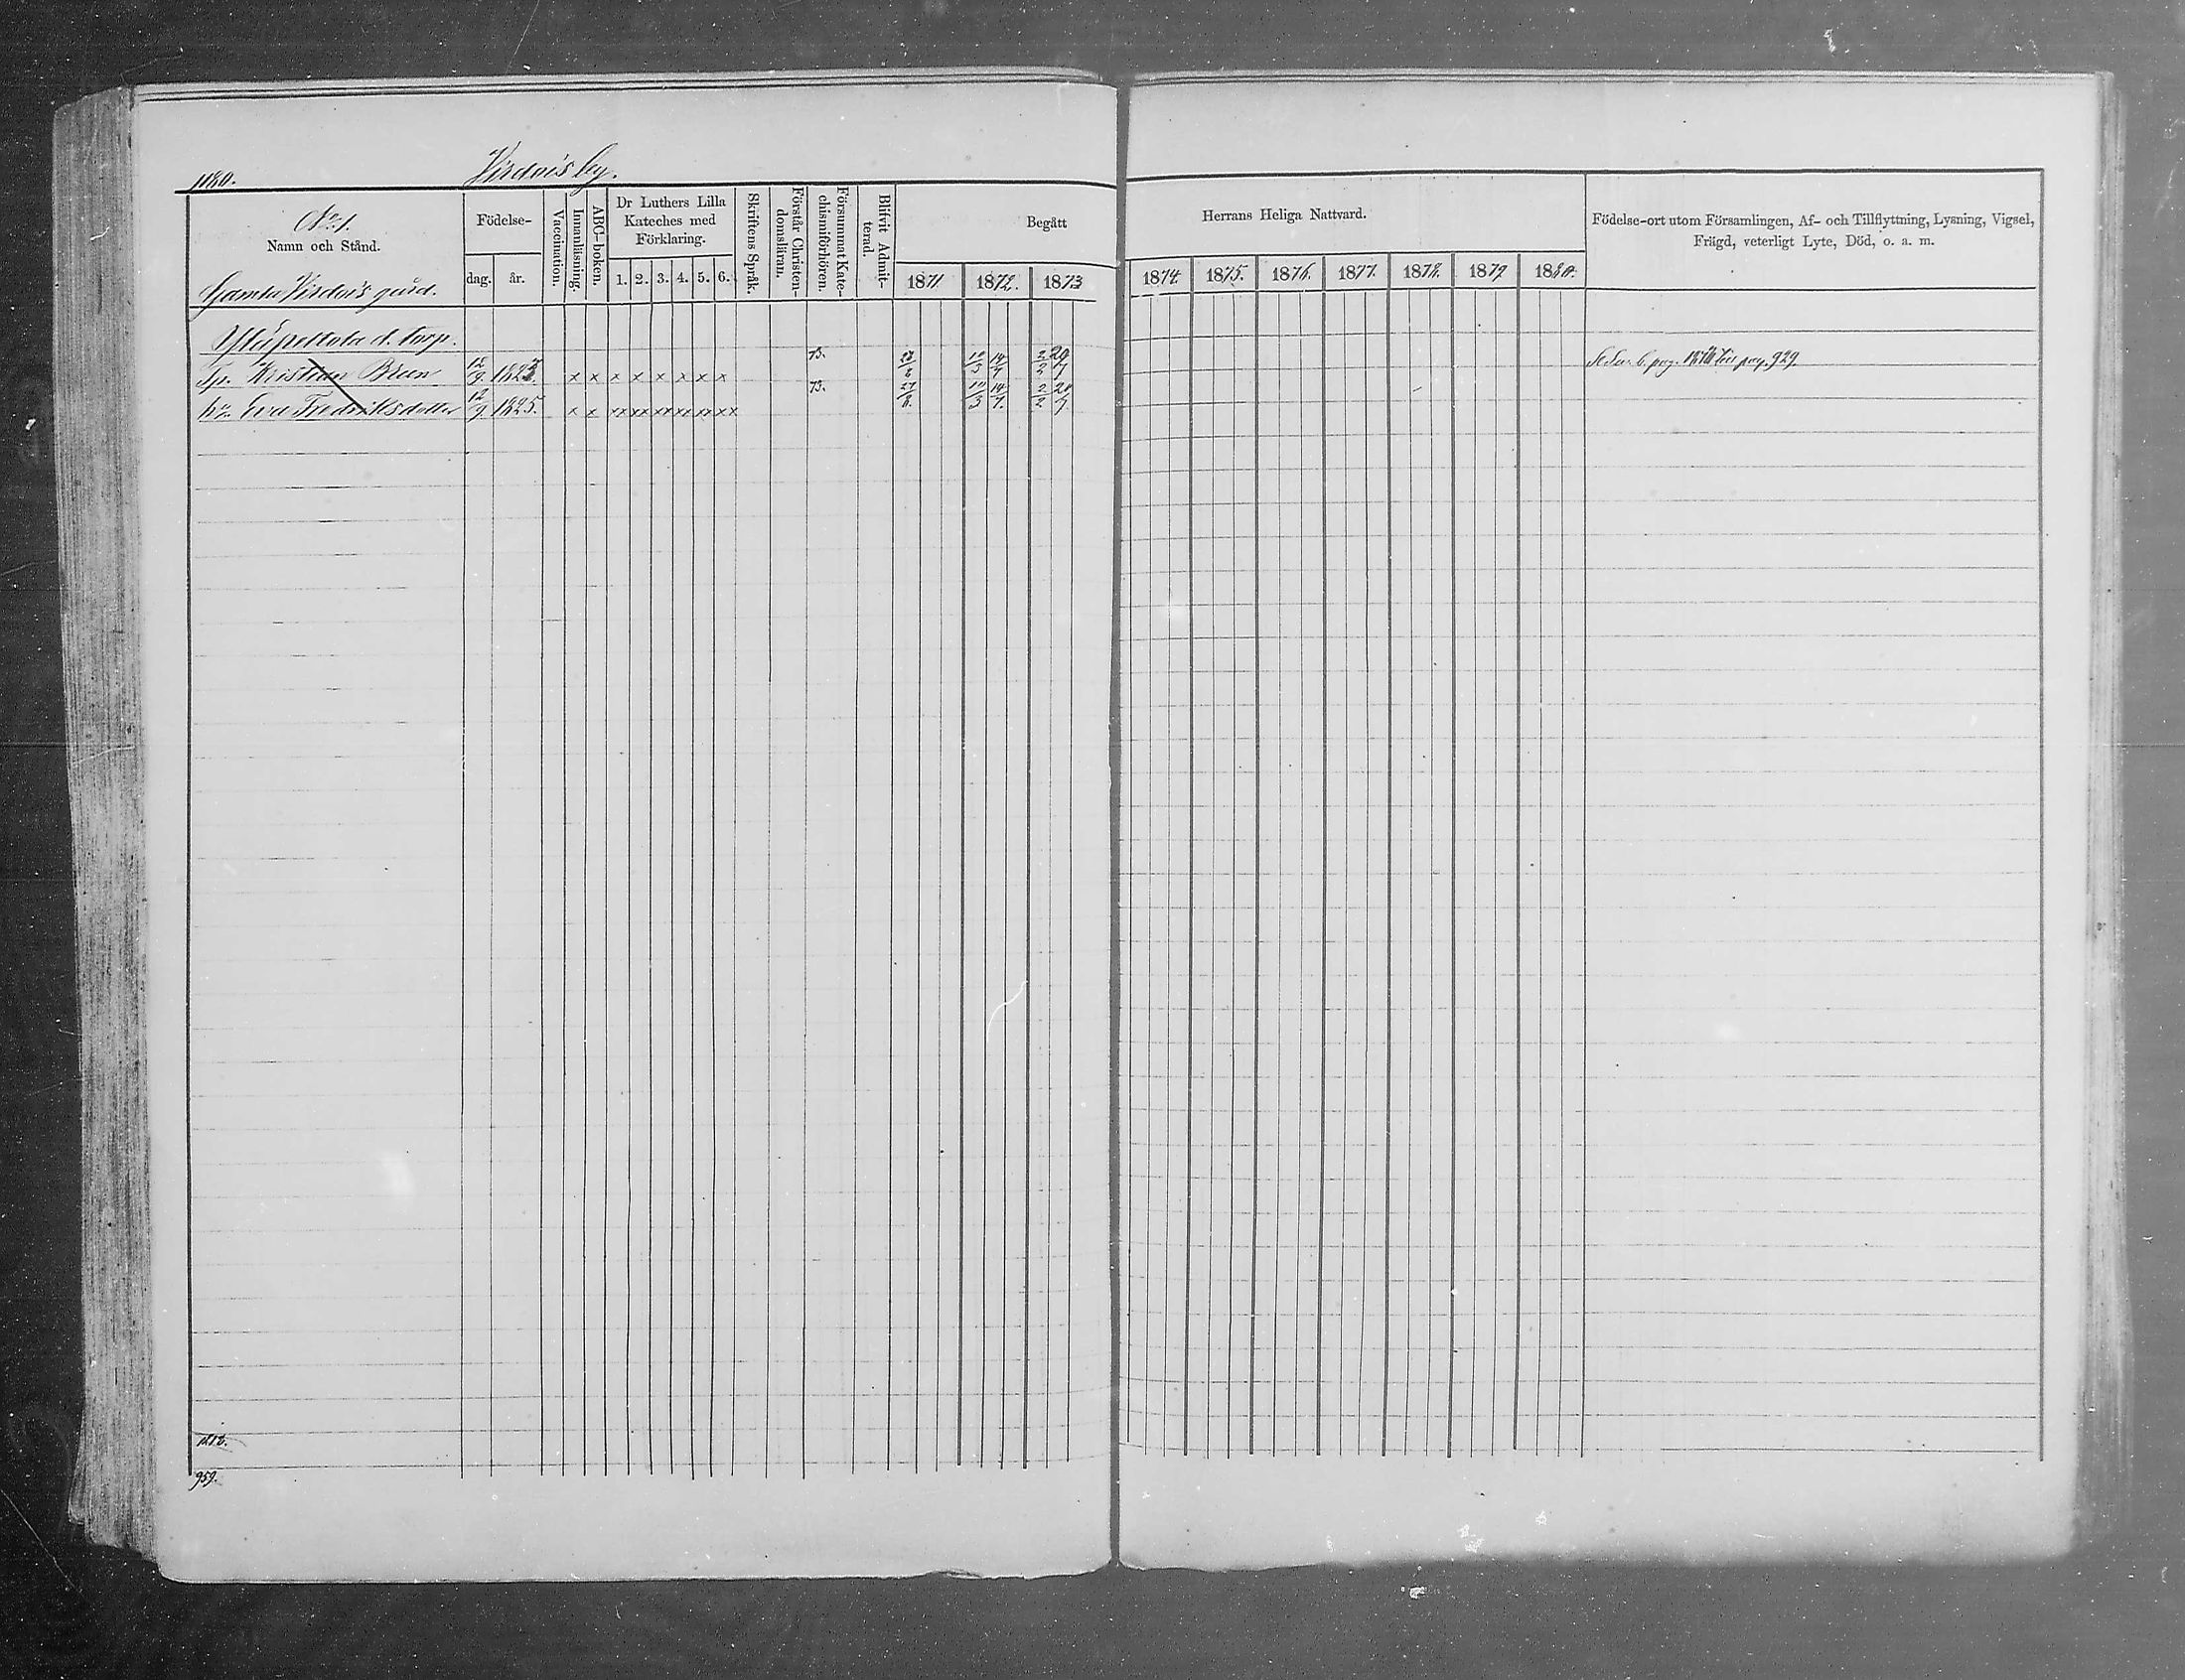 1180. Virdois by.
No 1.
Namn och Stånd.
Gamla Virdois gård.
Födelse-
dag. år.
Vaccination.
Innanläsning.
ABC-boken.
Dr Luthers Lilla
Kateches med
Förklaring.
1. 2. 3. 4. 5. 6.
Skriftens Språk.
Förstår Christen-
domsläran.
Försummat Kate-
chismiförhören.
Blifvit Admit-
terad.
Begått
1871 1872. 1873
Herrans Heliga Nattvard.
1874. 1875. 1876. 1877. 1878. 1879 1880.
Födelse-ort utom Församlingen, Af- och Tillflyttning, Lysning, Vigsel,
Frägd, veterligt Lyte, Död, o. a. m.
d. torp.
Tp. Kristian Breen 12/9 1823. x x x x x x x x 73. 10/3 14/7 2/2 20/7
pag. 929.
hu. Eva Fredriksdotter 12/9 1825. x x xx xx xx xx xx xx 73. 10/3 14/7. 2/2 20/7.
959.